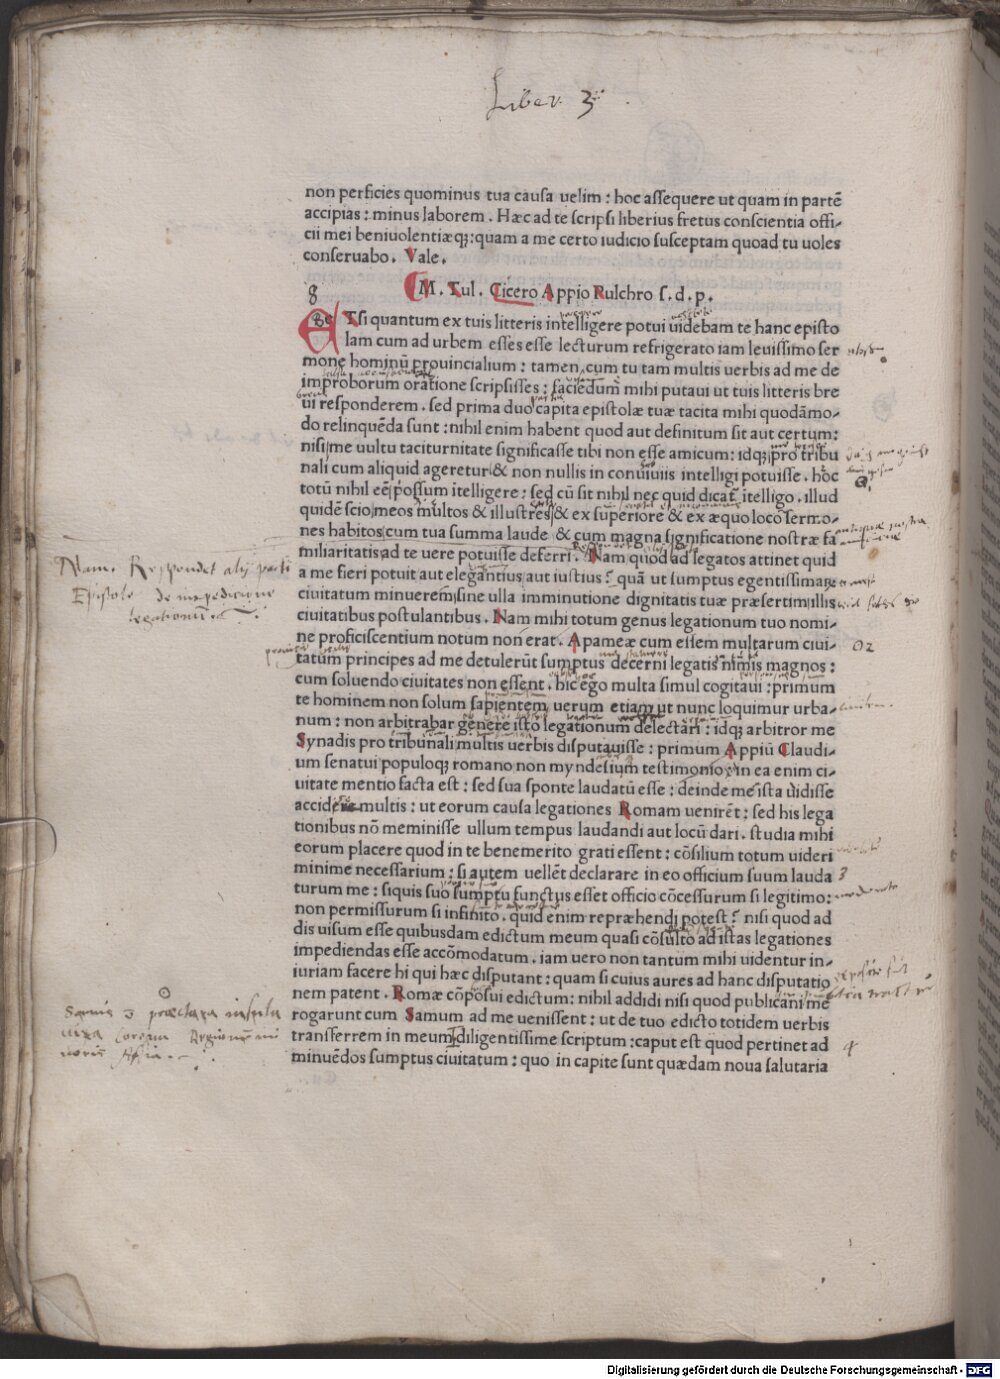 Liber 3
non perficies quominus tua causa uelim : hoc assequere ut quam in partē
accipias : minus laborem . Hæc ad te scripsi liberius fretus conscientia offi-
cii mei beniuolentiæq; : quam a me certo iudicio susceptam quoad tu uoles
conseruabo . Vale .
8 M . Tul . Cicero Appio Pulchro s . d . p .
ETsi quantum ex tuis litteris intelligere potui uidebam te hanc episto
lam cum ad urbem esses esse lecturum refrigerato iam leuissimo ser
mone hominū prouincialium : tamen cum tu tam multis uerbis ad me de
improborum oratione scripsisses : faciedum̄ mihi putaui ut tuis litteris bre
ui responderem . sed prima duo capita epistolæ tuæ tacita mihi quodāmo-
do relinquēda sunt : nihil enim habent quod aut definitum sit aut certum :
nisi me uultu taciturnitate significasse tibi non esse amicum : idq; pro tribu
nali cum aliquid ageretur & non nullis in conuiuiis intelligi potuisse . hoc
totū nihil eē possum itelligere : sed cū sit nihil nec quid dicat̄ itelligo . illud
quidē scio meos multos & illustres & ex superiore & ex æquo loco sermo-
nes habitos cum tua summa laude & cum magna significatione nostræ fa
miliaritatis ad te uere potuisse deferri . Nam quod ad legatos attinet quid
a me fieri potuit aut elegantius aut iustius ? quā ut sumptus egentissimaꝝ
ciuitatum minuerem sine ulla imminutione dignitatis tuæ præsertim illis
ciuitatibus postulantibus . Nam mihi totum genus legationum tuo nomi-
ne proficiscentium notum non erat . Apameæ cum essem multarum ciui-
tatum principes ad me detulerūt sumptus decerni legatis nimis magnos :
cum soluendo ciuitates non essent . hic ego multa simul cogitaui : primum
te hominem non solum sapientem uerum etiam ut nunc loquimur urba-
num : non arbitrabar genere isto legationum delectari : idq; arbitror me
Synadis pro tribunali multis uerbis disputauisse : primum Appiū Claudi-
um senatui populoq; romano non myndesium testimonio in ea enim ci-
uitate mentio facta est : sed sua sponte laudatū esse : deinde me ista uidisse
accidere multis : ut eorum causa legationes Romam uenirēt : sed his lega
tionibus nō meminisse ullum tempus laudandi aut locū dari . studia mihi
eorum placere quod in te benemerito grati essent : cōsilium totum uideri
minime necessarium : si autem uellēt declarare in eo officium suum lauda
turum me : siquis suo sumptu functus esset officio cōcessurum si legitimo :
non permissurum si infinito . quid enim repræhendi potest ? nisi quod ad
dis uisum esse quibusdam edictum meum quasi cōsulto ad istas legationes
impediendas esse accōmodatum . iam uero non tantum mihi uidentur in-
iuriam facere hi qui hæc disputant : quam si cuius aures ad hanc disputatio
nem patent . Romæ cōposui edictum : nihil addidi nisi quod publicani me
rogarunt cum Samum ad me uenissent : ut de tuo edicto totidem uerbis
transferrem in meum diligentissime scriptum : caput est quod pertinet ad
minuēdos sumptus ciuitatum : quo in capite sunt quædam noua salutaria
Nam . Respondet
Epistole de impedicione
legationū
02
3
4
Digitalisierung gefördert durch die Deutsche Forschungsgemeinschaft - DFG